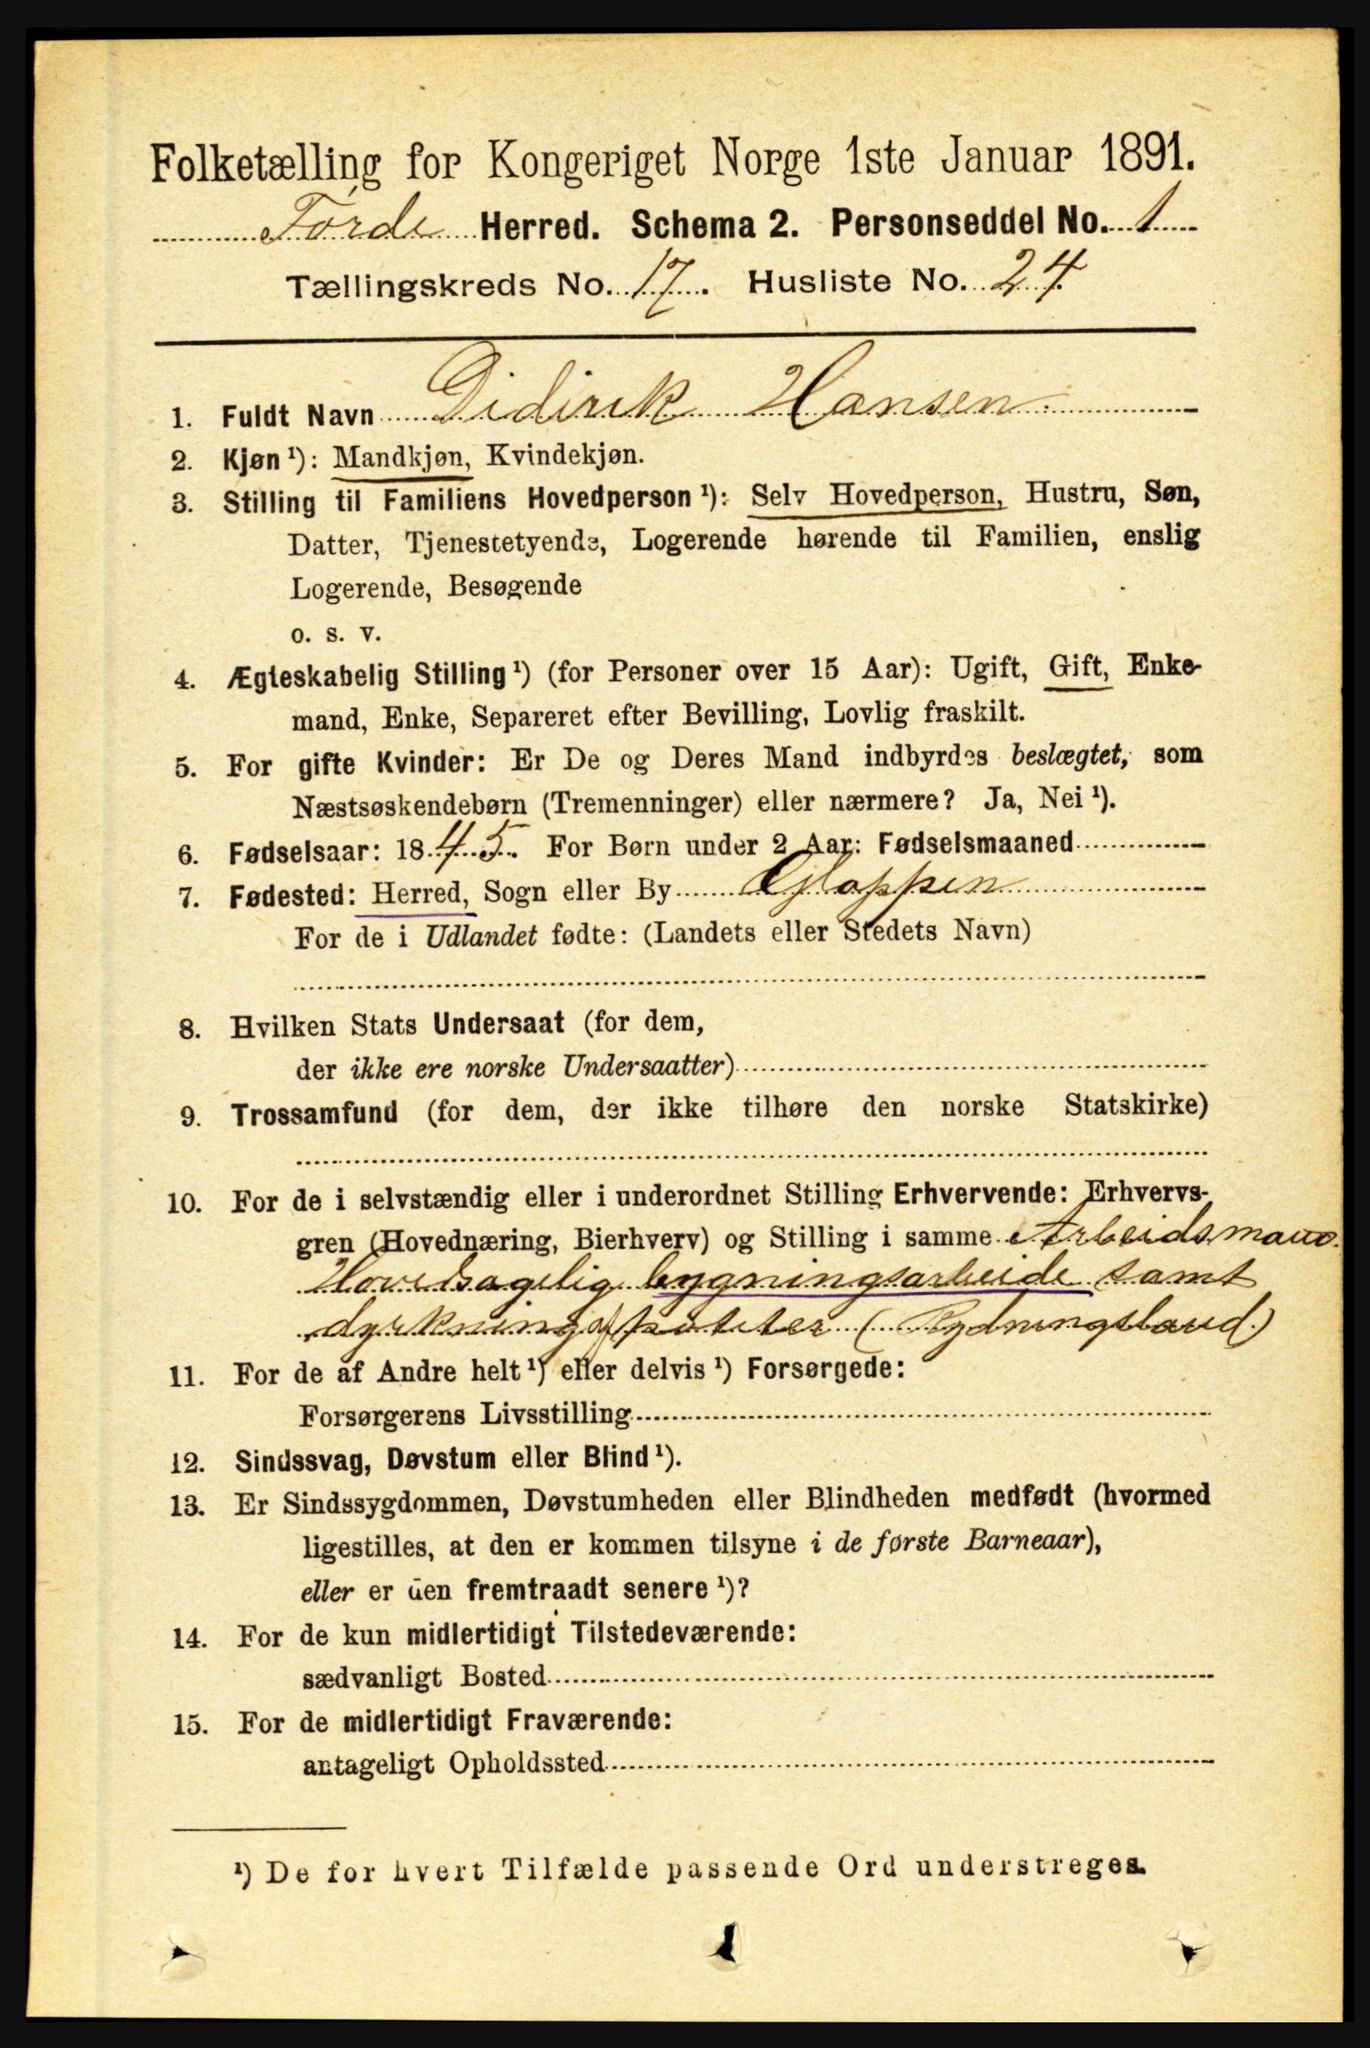 Folketælling for Kongeriget Norge 1ste Januar 1891.
Førde Herred. Schema 2. Personseddel No. 1
Tællingskreds No. 17. Husliste No. 24
1. Fuldt Navn Didirik Hansen
2. Kjøn ¹): Mandkjøn, Kvindekjøn.
3. Stilling til Familiens Hovedperson ¹): Selv Hovedperson, Hustru, Søn,
Datter, Tjenestetyende, Logerende hørende til Familien, enslig
Logerende, Besøgende
o. s. v.
4. Ægteskabelig Stilling ¹) (for Personer over 15 Aar): Ugift, Gift, Enke-
mand, Enke, Separeret efter Bevilling, Lovlig fraskilt.
5. For gifte Kvinder: Er De og Deres Mand indbyrdes beslægtet, som
Næstsøskendebørn (Tremenninger) eller nærmere? Ja, Nei ¹).
6. Fødselsaar: 1845. For Børn under 2 Aar: Fødselsmaaned
7. Fødested: Herred, Sogn eller By Gloppen
For de i Udlandet fødte: (Landets eller Stedets Navn)
8. Hvilken Stats Undersaat (for dem,
der ikke ere norske Undersaatter)
9. Trossamfund (for dem, der ikke tilhøre den norske Statskirke)
10. For de i selvstændig eller i underordnet Stilling Erhvervende: Erhvervs-
gren (Hovednæring, Bierhverv) og Stilling i samme Arbeidsmand.
Hovedsagelig bygningsarbeide samt
dyrkning af poteter (Rydningsland)
11. For de af Andre helt ¹) eller delvis ¹) Forsørgede:
Forsørgerens Livsstilling
12. Sindssvag, Døvstum eller Blind ¹).
13. Er Sindssygdommen, Døvstumheden eller Blindheden medfødt (hvormed
ligestilles, at den er kommen tilsyne i de første Barneaar),
eller er den fremtraadt senere ¹)?
14. For de kun midlertidigt Tilstedeværende:
sædvanligt Bosted
15. For de midlertidigt Fraværende:
antageligt Opholdssted
¹) De for hvert Tilfælde passende Ord understreges.